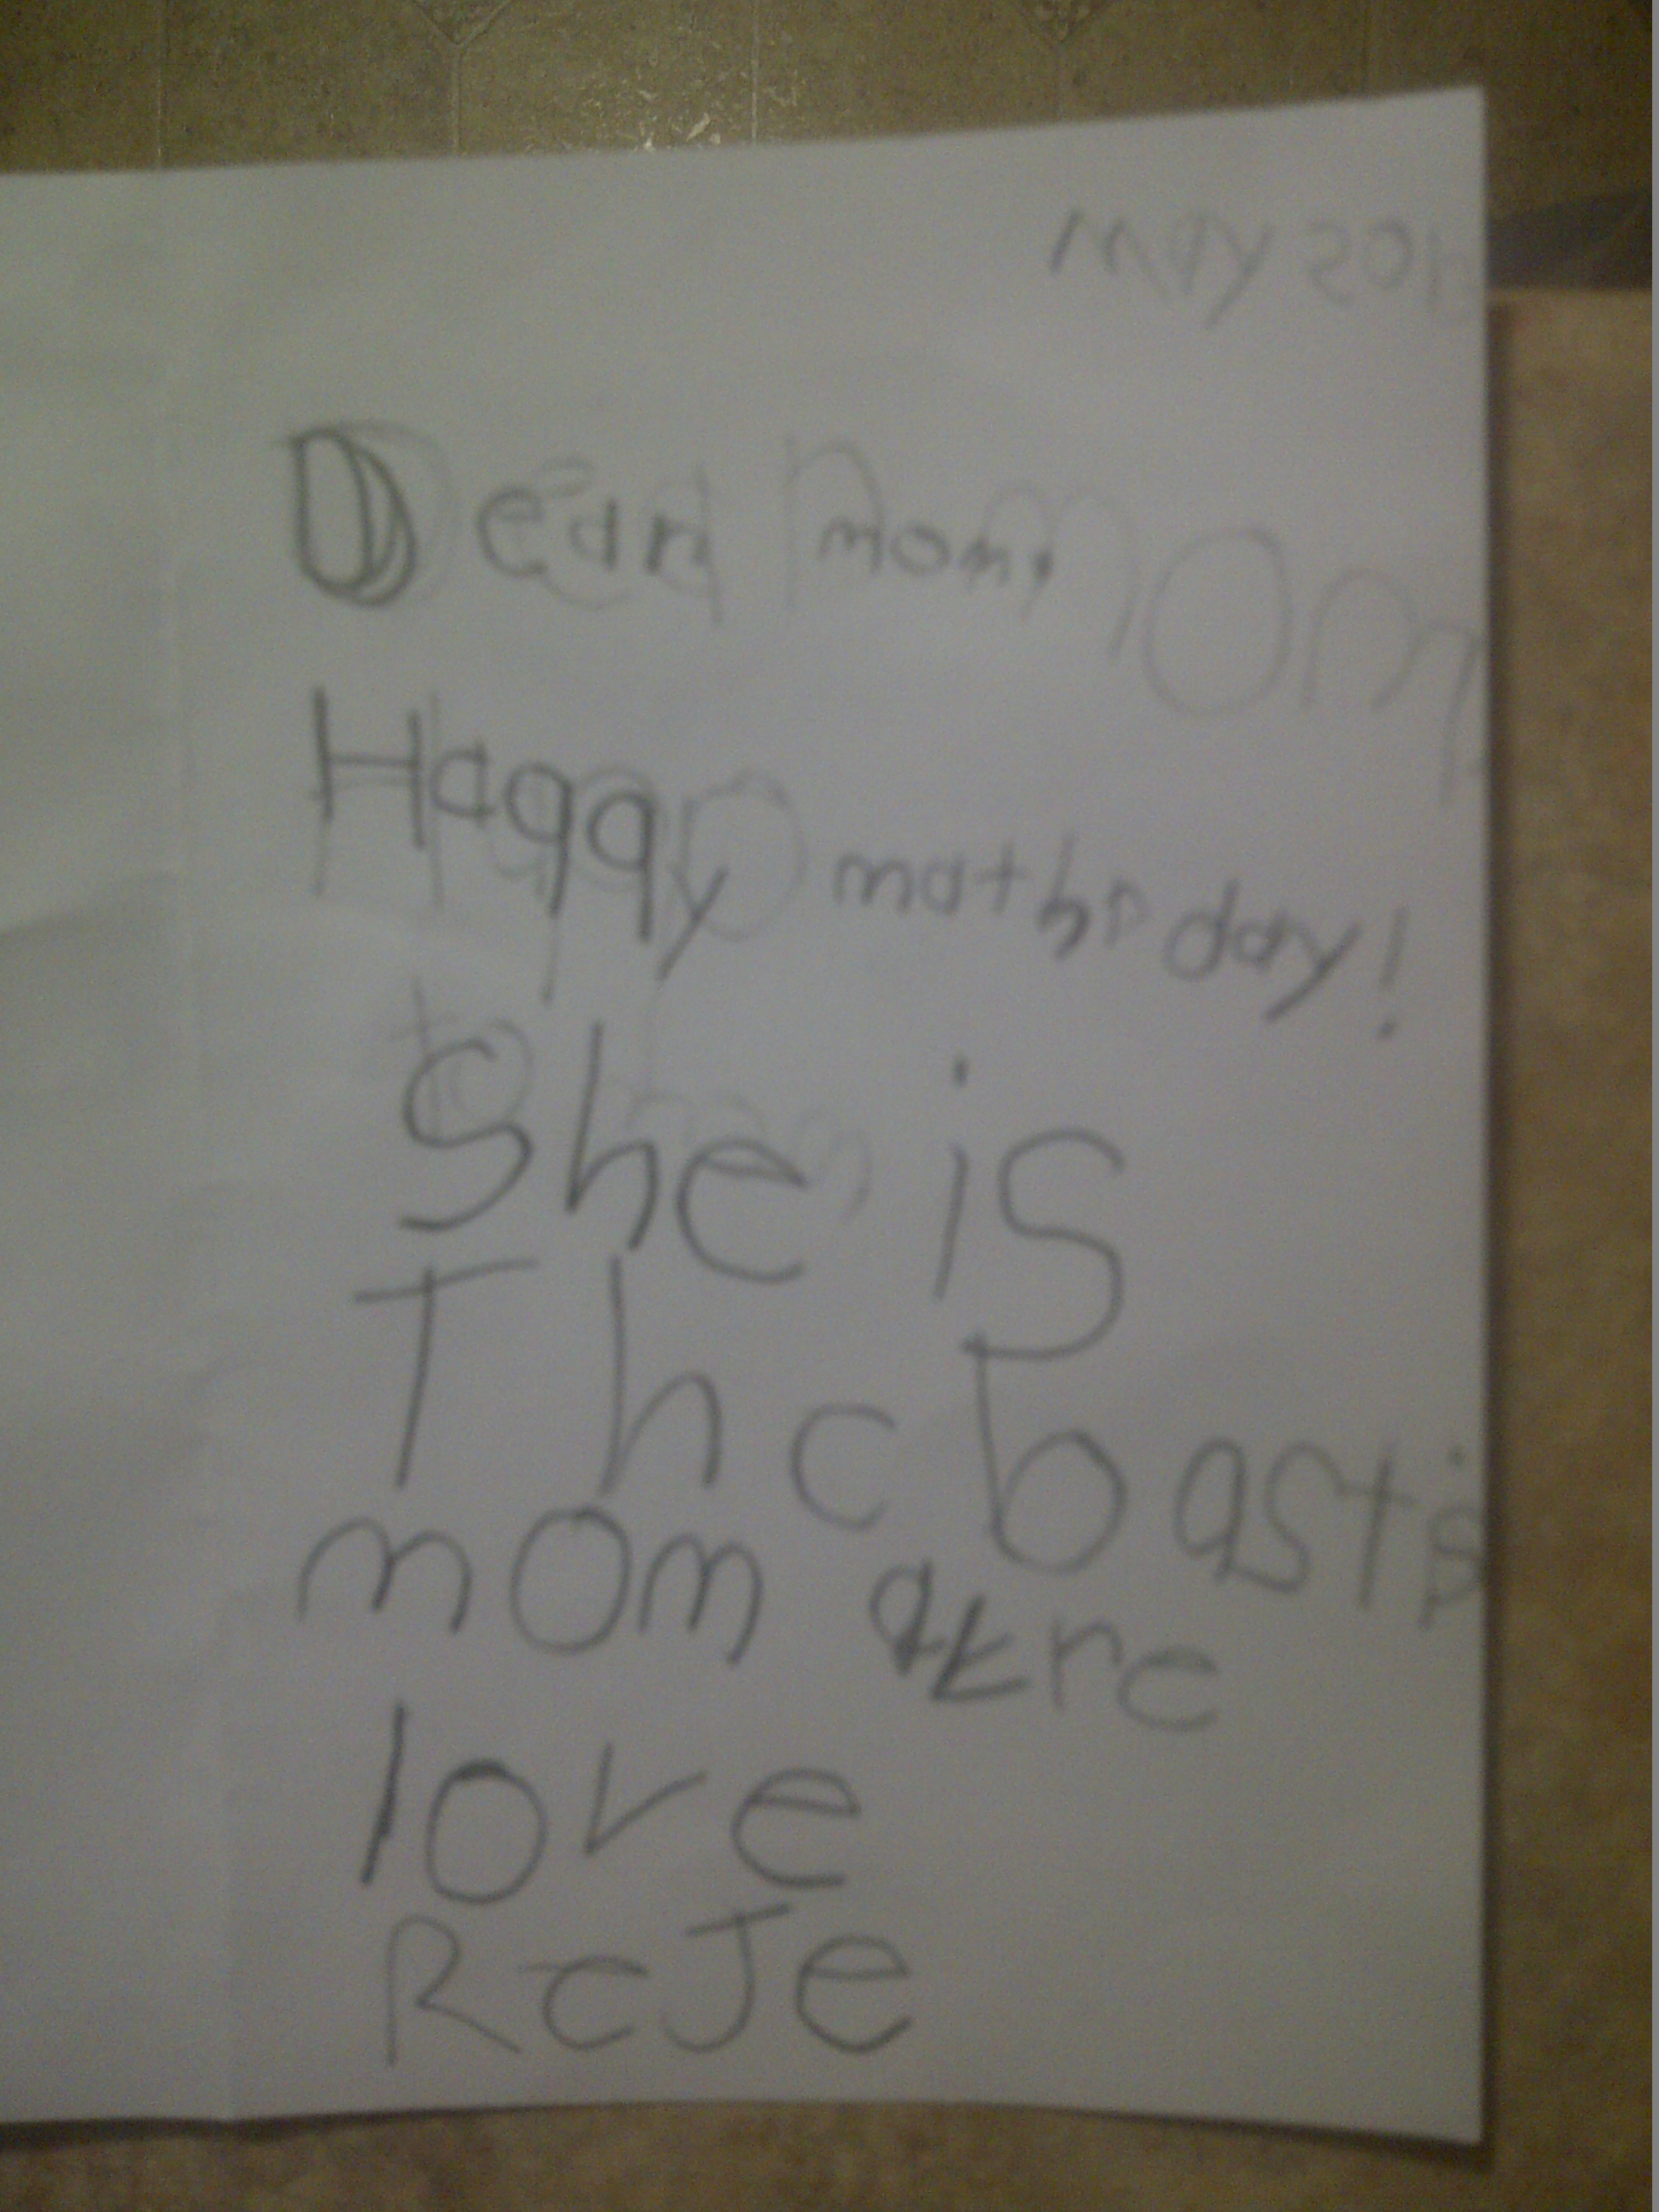 MAY 201
Dear mom,
Haqqy mathr day!
She is
The bast
mom are
love
ReJe